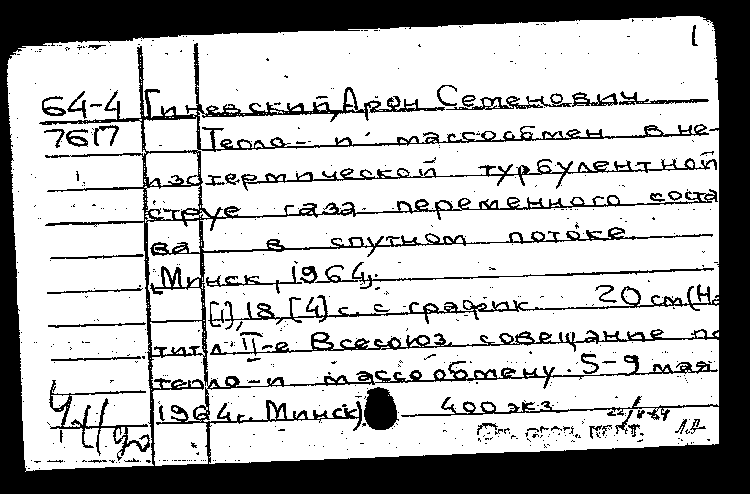 1
64-4 Гиневский, Арон Семенович.
7617 Тепло- и массообмен в не-
изотермической турбулентной
струе газа переменного соста
ва в спутном потоке.
Минск, 1964.
[1], 18, [4] с. с график. 20 см (На
титл: II-е Всесоюз. совещание по
тепло- и массообмену. 5-9 мая
1964 г. Минск) 400 экз.